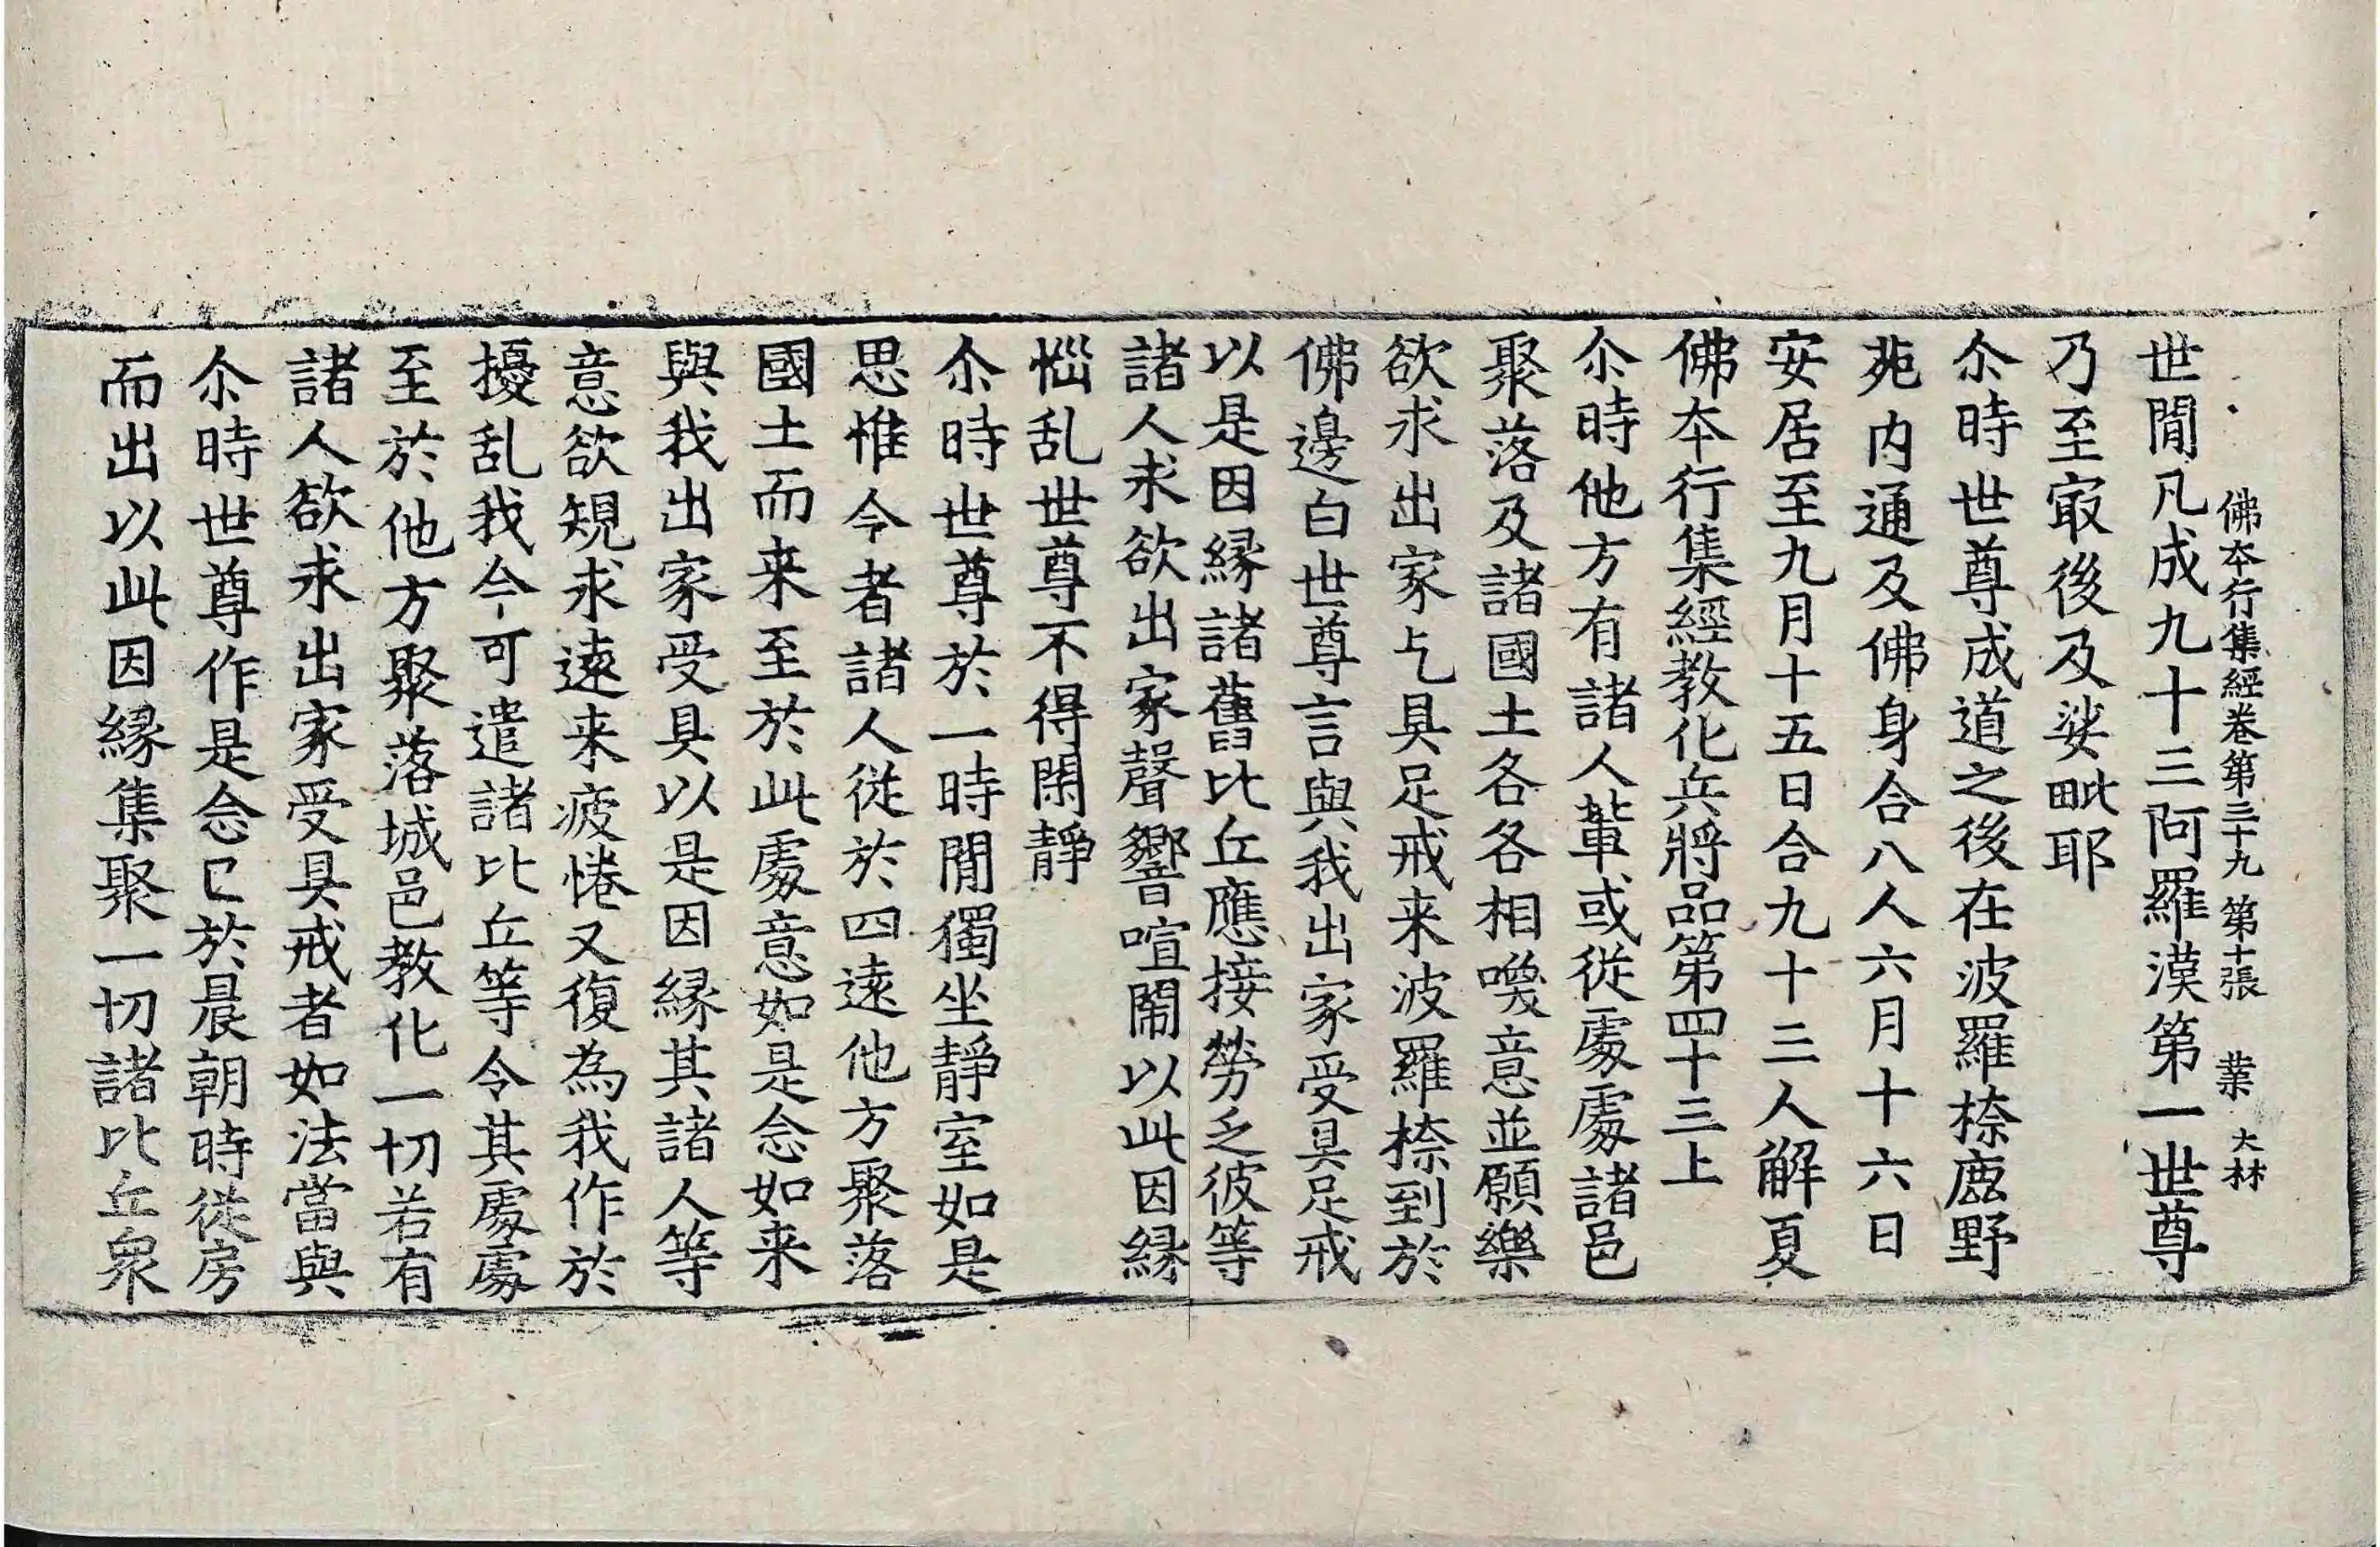 佛本行集經卷第三十九 第十張 葉 大林
世閒凡成九十三阿羅漢第一世尊
乃至㝡後及娑毗耶
尒時世尊成道之後在波羅㮈鹿野
苑内通及佛身合八人六月十六日
安居至九月十五日合九十三人解夏
佛夲行集經教化兵將品第四十三上
尒時他方有諸人輩或從處處諸邑
聚落及諸國土各各相喚意並願樂
欲求出家乞具足戒来波羅㮈到於
佛邊白世尊言與我出家受具足戒
以是因縁諸舊比丘應接勞乏彼等
諸人求欲出家聲響喧鬧以此因縁
惱乱世尊不得閑靜
尒時世尊於一時閒獨坐靜室如是
思惟今者諸人從於四遠他方聚落
國土而来至於此處意如是念如来
與我出家受具以是因縁其諸人等
意欲規求遠来疲惓又復為我作於
擾乱我今可遣諸比丘等令其處處
至於他方聚落城邑教化一切若有
諸人欲求出家受具戒者如法當與
尒時世尊作是念已於晨朝時從房
而出以此因縁集聚一切諸比丘衆